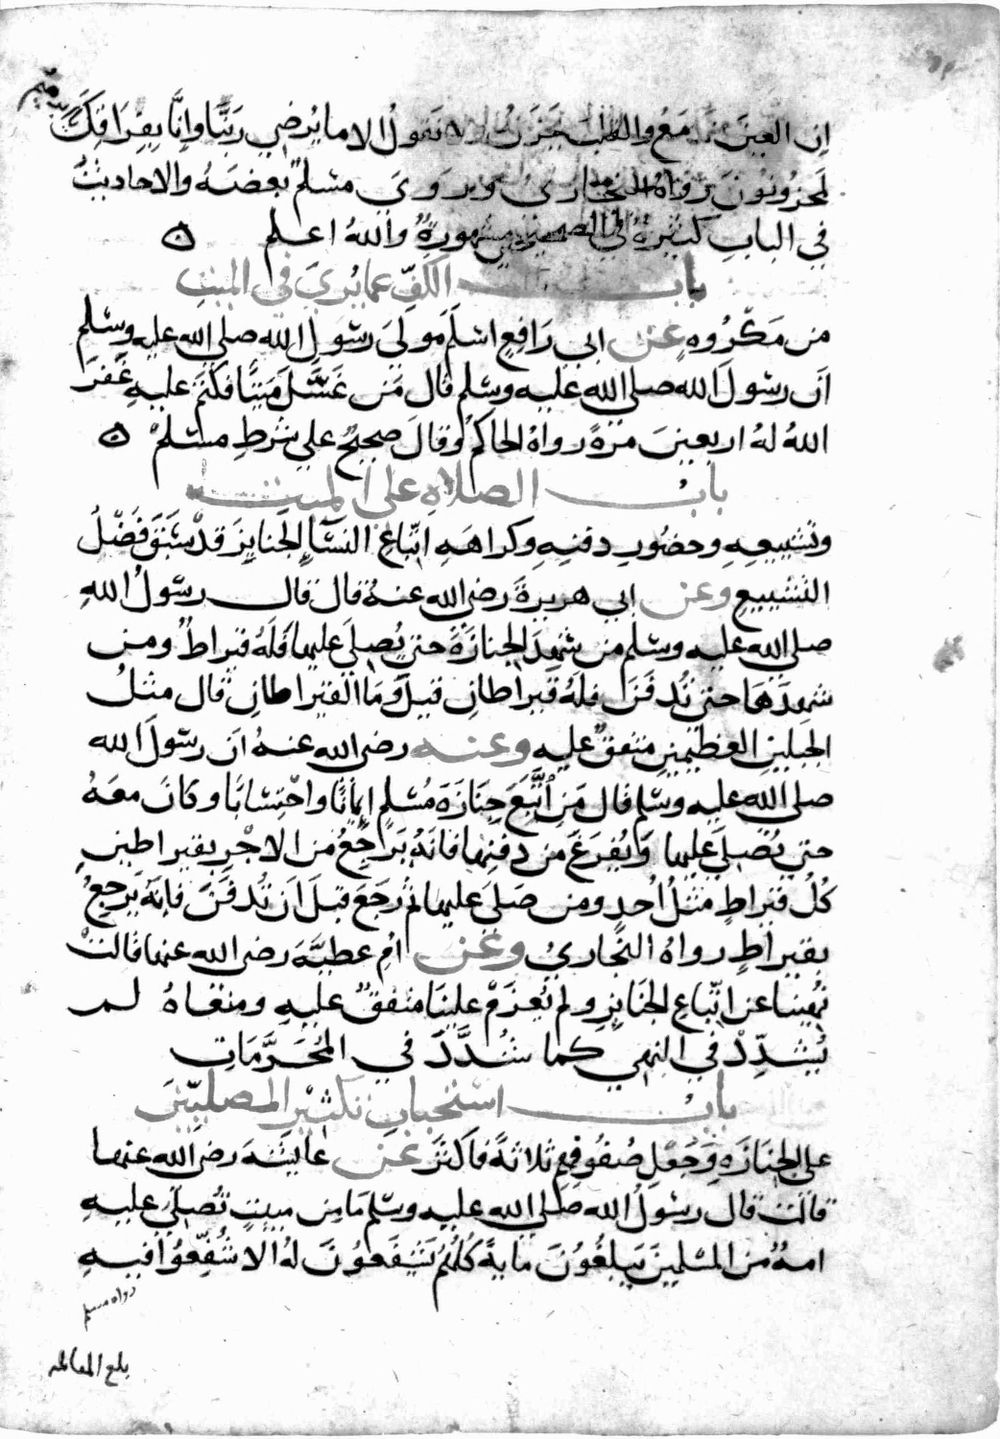 ان العين تدمع والقلب يحزن ولا نقول الا ما يرضي ربنا وانا بفراقك
لمحزونون رواه البخاري وروى مسلم بعضه والاحاديث
في الباب كثيرة في الصحيح مشهورة والله اعلم ه
باب الكف عما يرى في الميت
من مكروه عن ابي رافع اسلم مولى رسول الله صلى الله عليه وسلم
ان رسول الله صلى الله عليه وسلم قال من غسل ميتا فكتم عليه غفر
الله له اربعين مرة رواه الحاكم وقال صحيح على شرط مسلم ه
باب الصلاه على الميت
وتشييعه وحضور دفنه وكراهه اتباع النسا الجنايز قد سبق فضل
التشييع وعن ابي هريرة رضي الله عنه قال قال رسول الله
صلى الله عليه وسلم من شهد الجنازة حتى يصلى عليها فله قيراط ومن
شهدها حتى تدفن فله قيراطان قيل وما القيراطان قال مثل
الجبلين العظيمين متفق عليه وعنه رضي الله عنه ان رسول الله
صلى الله عليه وسلم قال من اتبع جنازة مسلم ايمانا واحتسابا وكان معه
حتى يصلى عليها ويفرغ من دفنها فانه يرجع من الاجر بقيراطين
كل قيراط مثل احد ومن صلى عليها ثم رجع قبل ان تدفن فانه يرجع
بقيراط رواه البخاري وعن ام عطية رضي الله عنها قالت
نهينا عن اتباع الجنايز ولم يعزم علينا متفق عليه ومعناه لم
يشدد في النهي كما شدد في المحرمات
باب استحباب تكثير المصلين
على الجنازه وجعل صفوفهم ثلاثة فاكثر عن عايشة رضي الله عنها
قالت قال رسول الله صلى الله عليه وسلم ما من ميت تصلي عليه
امة من المسلمين يبلغون ماية كلهم يشفعون له الا شفعوا فيه
رواه مسلم
بلغ المقابله